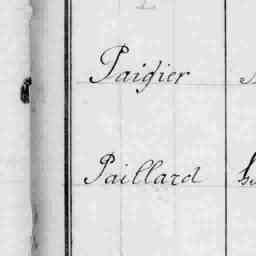 Paigier
Paillard